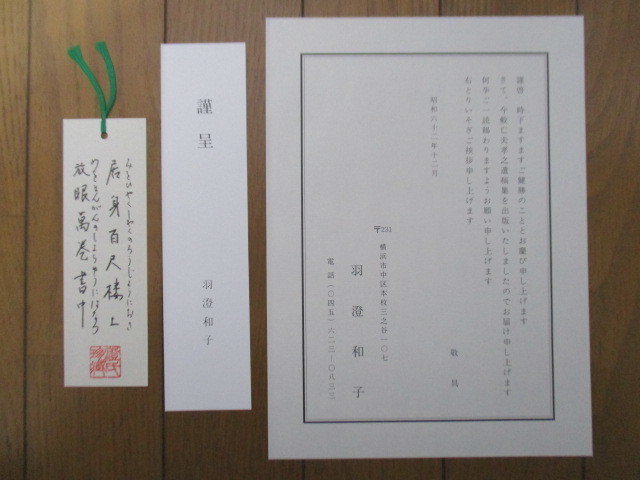 謹啓　時下ますますご健勝のこととお慶び申し上げます
さて、今般亡夫孝之遺稿集を出版いたしましたのでお届け申し上げます
何卒ご一読賜わりますようお願い申し上げます
右とりいそぎご挨拶申し上げます
敬具
昭和六十二年十二月
〒231
横浜市中区本牧三之谷一〇七
羽澄和子
電話(〇四五)六二三-〇八三三
謹呈
羽澄和子
みをひゃくしゃくのろうじょうにおき
居身百尺樓上
めをまんがんのしょちゅうにはなつ
放眼萬巻書中